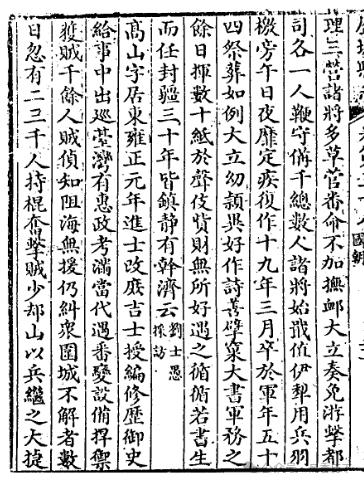 理三營諸將多草菅番命不加撫卹大立奏免游擊都
司各一人鞭守備千總數人諸將始戢值伊犂用兵羽
檄旁午日夜靡定疾復作十九年三月卒於軍年五十
四祭葬如例大立幼穎異好作詩善擘窠大書軍務之
餘日揮數十紙於聲伎貨財無所好遇之循循若書生
而任封疆三十年皆鎮靜有幹濟云劉士愚採訪
高山字居東雍正元年進士改庶吉士授編修歷御史
給事中出巡臺灣有惠政考滿當代遇番變設備捍禦
獲賊千餘人賊偵知阻海無援仍糾衆圍城不解者數
日忽有二三千人持棍奮擊賊少却山以兵繼之大捷